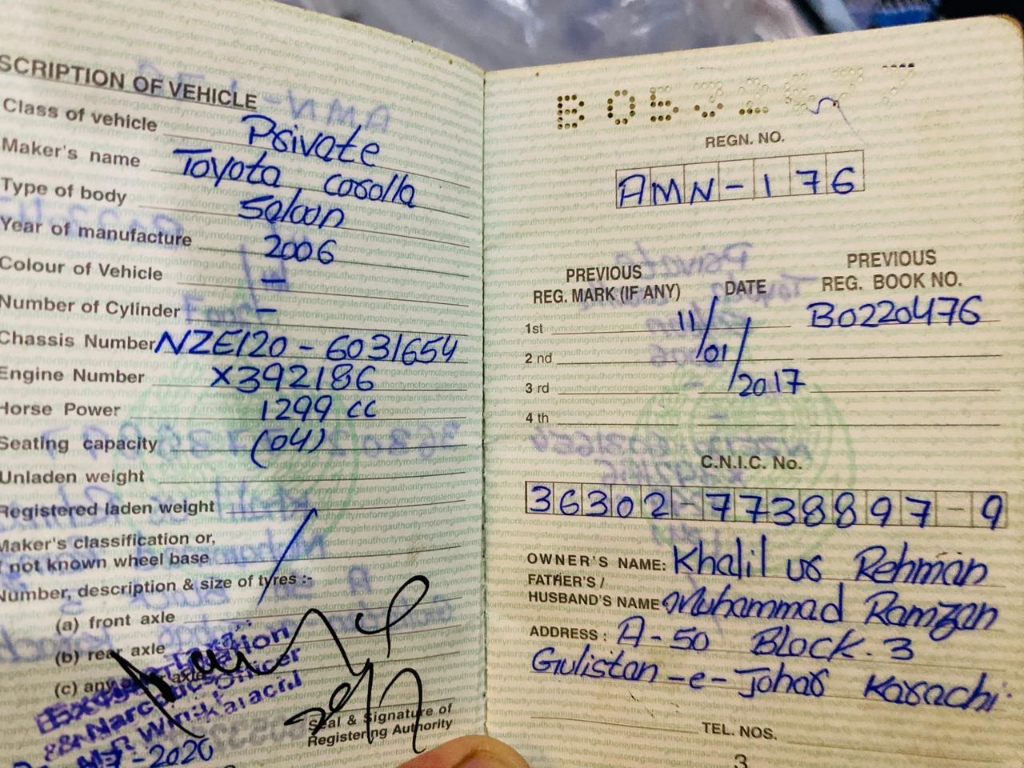 SCRIPTION OF VEHICLE
Class of vehicle Private
Maker's name Toyota Corolla
Type of body Saloon
Year of manufacture 2006
Colour of Vehicle –
Number of Cylinder –
Chassis Number NZE120 - 6031654
Engine Number X392186
Horse Power 1299 cc
Seating capacity (04)
Unladen weight
Registered laden weight
Maker's classification or,
not known wheel base
Number, description & size of tyres :-
(a) front axle
(b) rear axle
(c) any axle
Seal & Signature of
Registering Authority
2020
REGN. NO.
AMN-176
PREVIOUS REG. MARK (IF ANY) DATE PREVIOUS REG. BOOK NO.
1st 11/ B0220476
2 nd 01/
3 rd 2017
4 th
C.N.I.C. No.
36302-7738897-9
OWNER'S NAME: Khalil ur Rehman
FATHER'S /
HUSBAND'S NAME Muhammad Ramzan
ADDRESS : A-50 Block. 3
Gulistan-e-Johar Karachi.
TEL. NOS.
3